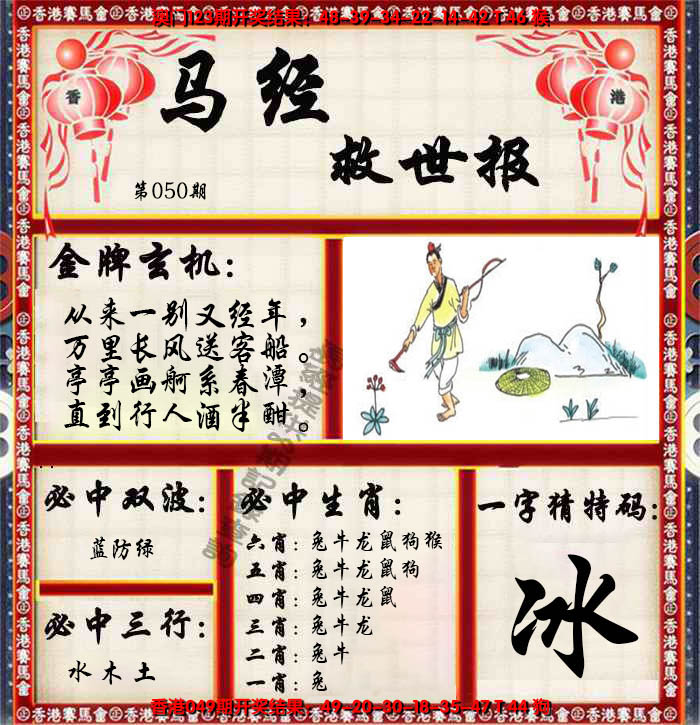 澳门123期开奖结果：48-39-34-22-14-42T46 猴
香 港
马经
救世报
第050期
金牌玄机：
从来一别又经年，
万里长风送客船。
亭亭画舸系春潭，
直到行人酒半酣。
必中双波：
蓝防绿
必中三行：
水木土
必中生肖：
六肖：兔牛龙鼠狗猴
五肖：兔牛龙鼠狗
四肖：兔牛龙鼠
三肖：兔牛龙
二肖：兔牛
一肖：兔
一字猜特码：
冰
香港049期开奖结果：49-20-80-18-35-47T44 狗
香港賽馬會